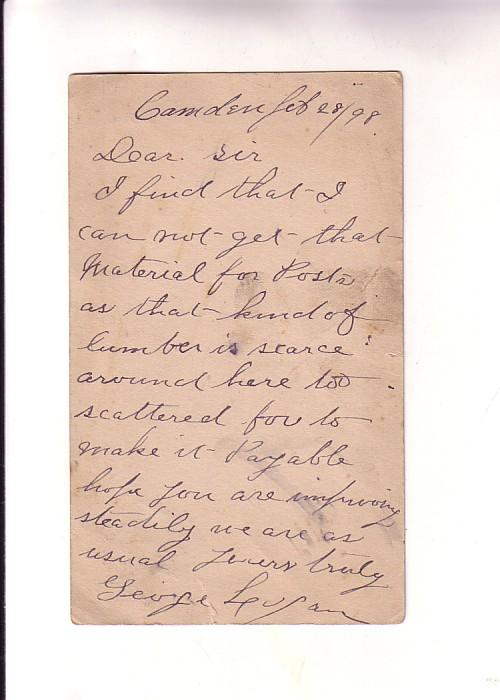 Camden Feb 28/98.
Dear. Sir
I find that I
can not get that
Material for Posts
as that kind of
lumber is scarce
around here too
scattered for to
make it Payable
hope you are improving
steadily we are as
usual Yours truly
George